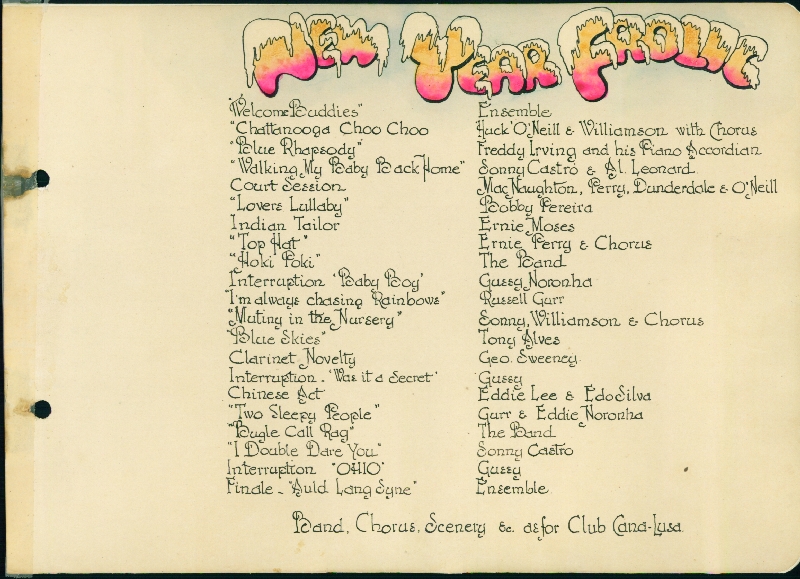 New Year Frolic
"Welcome Buddies" Ensemble
"Chattanooga Choo Choo Huck O'Neill & Williamson with Chorus
"Blue Rhapsody" Freddy Irving and his Piano Accordian
"Walking My Baby Back Home" Sonny Castro & Al. Leonard
Court Session MacNaughton, Perry, Dunderdale & O'Neill
"Lovers Lullaby" Bobby Pereira
Indian Tailor Ernie Moses
"Top Hat" Ernie Perry & Chorus
"Hoki Poki" The Band
Interruption 'Baby Boy' Gussy Noronha
"I'm always chasing Rainbows" Russell Gurr
"Mutiny in the Nursery" Sonny, Williamson & Chorus
"Blue Skies" Tony Alves
Clarinet Novelty Geo. Sweeney.
Interruption - 'Was it a Secret' Gussy
Chinese Act Eddie Lee & EdoSilva
"Two Sleepy People" Gurr & Eddie Noronha
"Bugle Call Rag" The Band
"I Double Dare You" Sonny Castro
Interruption "OHIO" Gussy
Finale - "Auld Lang Syne" Ensemble
Band, Chorus, Scenery &c. as for Club Cana-Lusa.